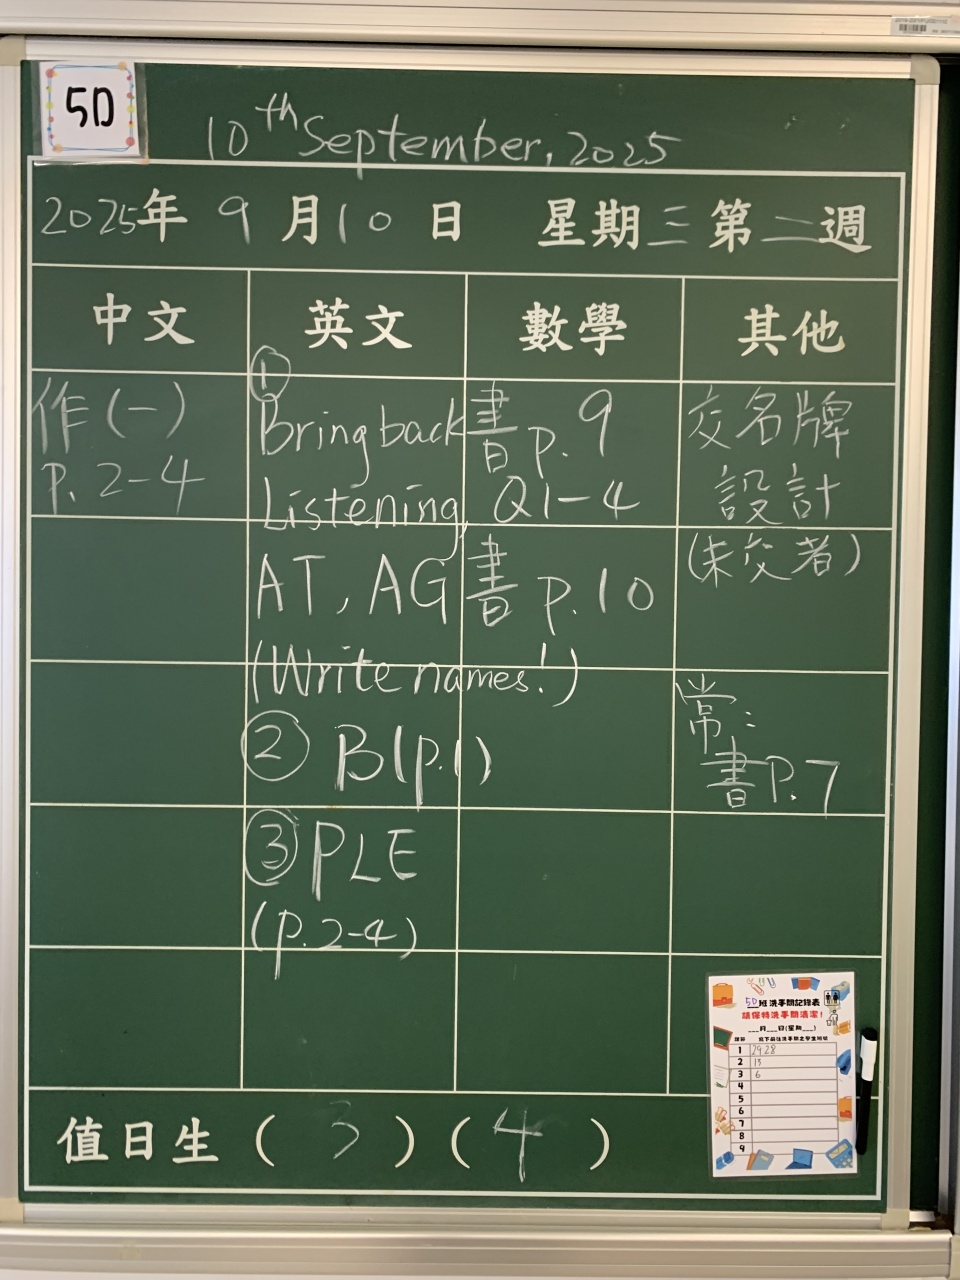 5D
10th September, 2025
2025年 9 月 10 日 星期三第二週
中文 英文 數學 其他
作(一)
p. 2-4
①
Bring back
Listening,
AT, AG
(Write names!)
② B(p.1)
③ PLE
(p.2-4)
書 p. 9
Q1-4
書 p.10
交名牌
設計
(未交者)
常:
書 P.7
值日生 ( 3 ) ( 4 )
5D班洗手間記錄表
請保持洗手間清潔!
___月___日(星期___)
課節 寫下前往洗手間之學生班號
1 29 28
2 13
3 6
4
5
6
7
8
9